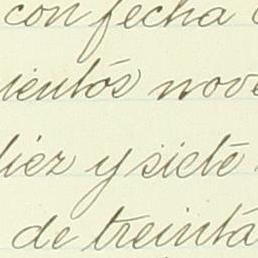 con fecha
cientos nove
diez y siete
de treinta